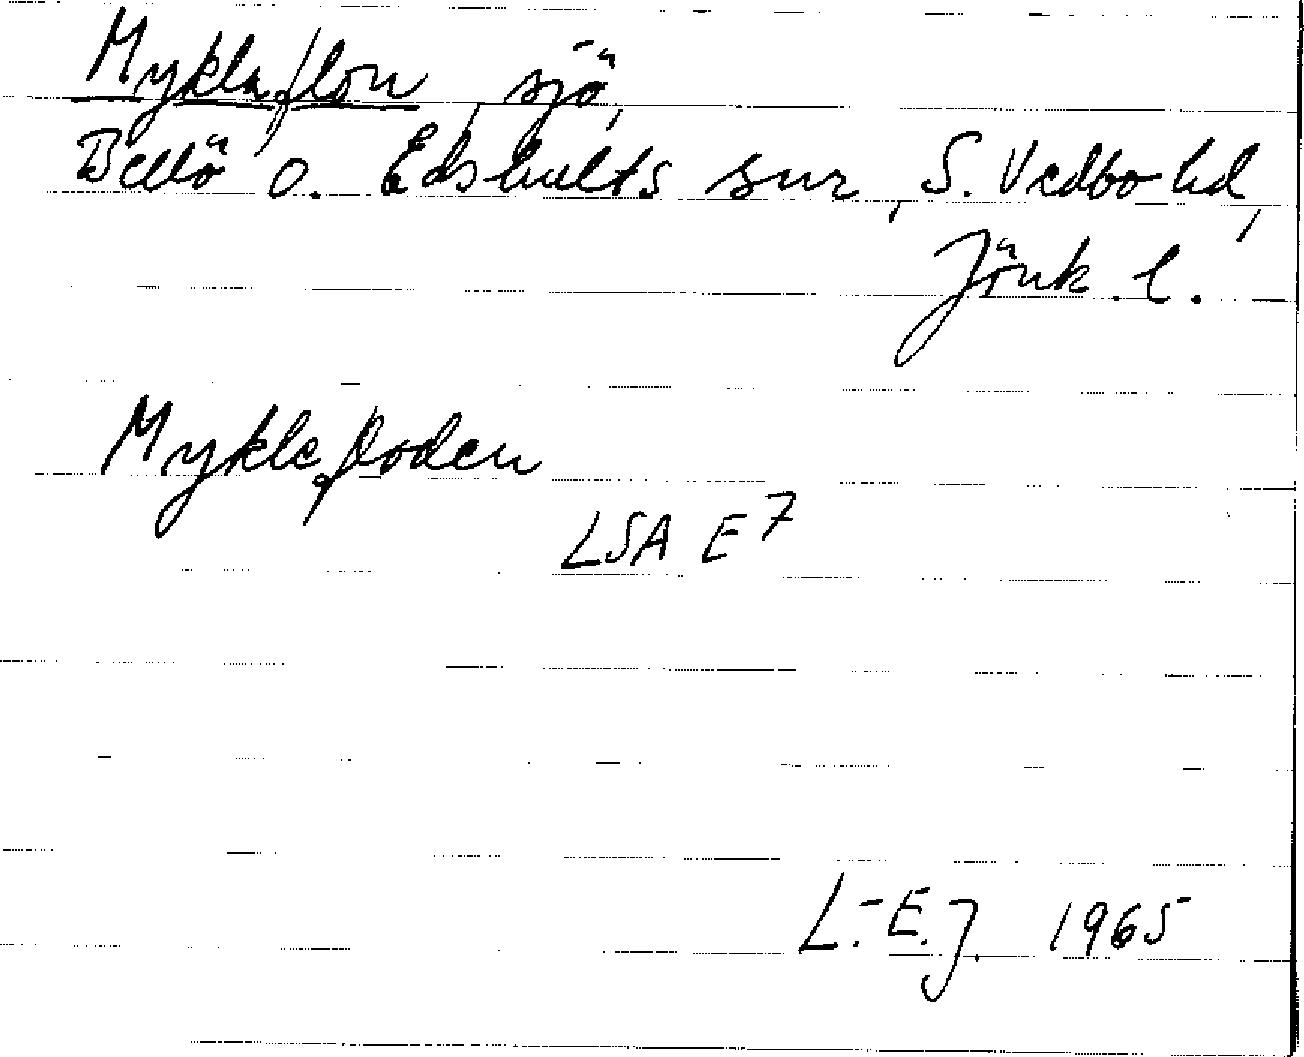 Myklaflon, sjö,
Bellö o. Edshults snr, S. Vedbo hd,
Jönk. l.
Myklefloden
LSA E7
L.-E.J. 1965